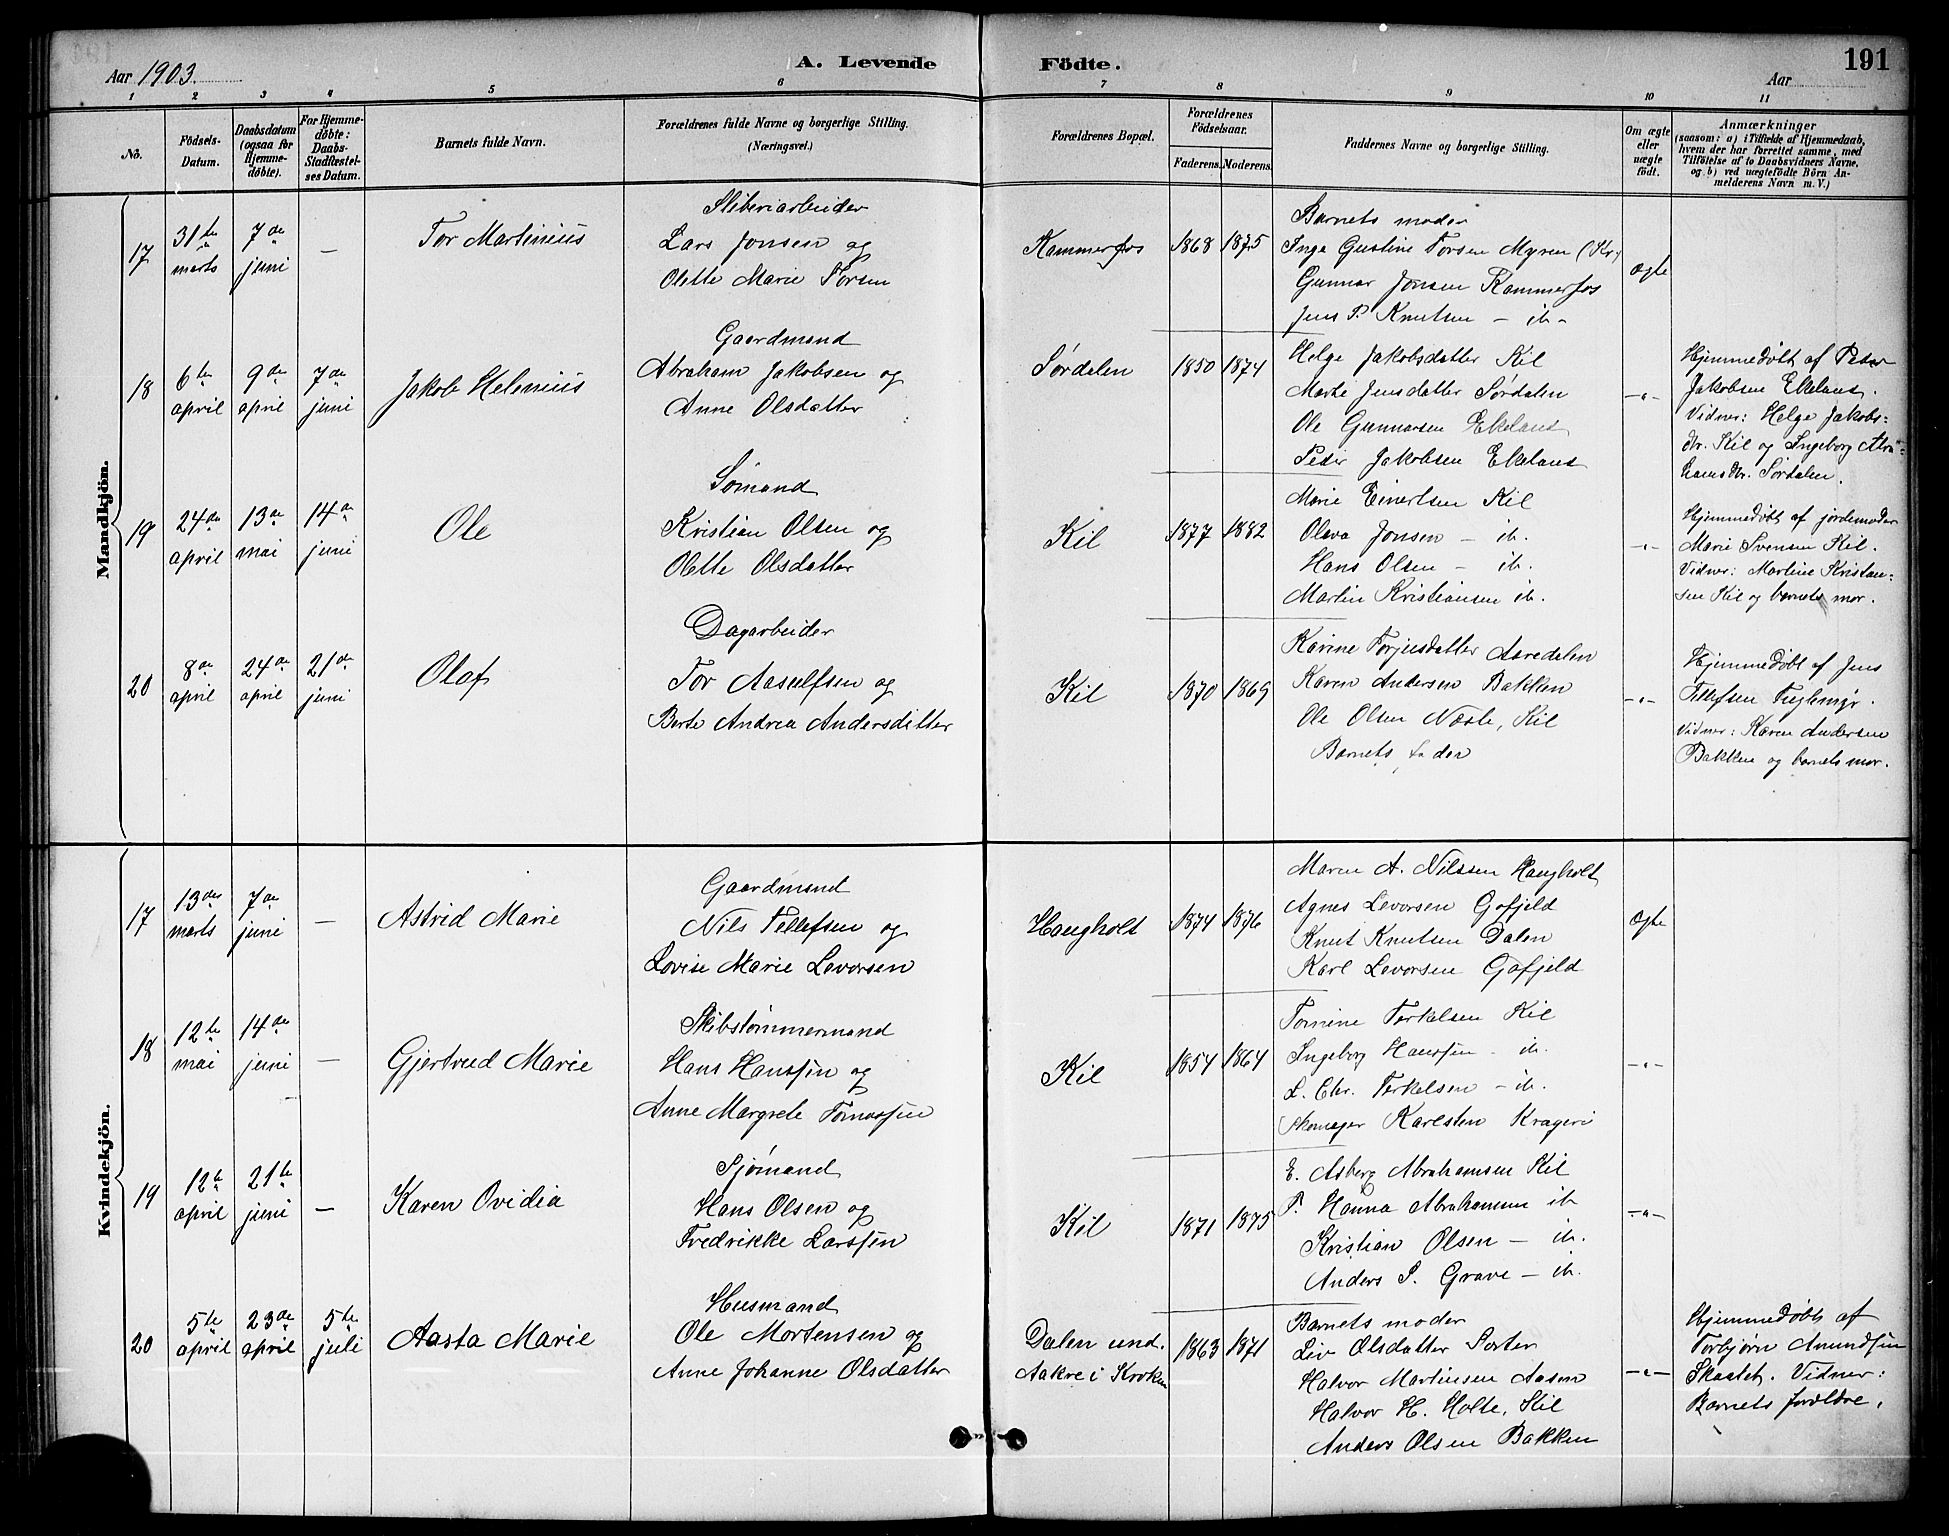 Aar 1903.
A. Levende
Födte.
Aar
191
1 2 3 4 5 6 7 8 9 10 11
No.
Födsels-
Datum.
Daabsdatum
(ogsaa for
Hjemme-
döbte).
For Hjemme-
döbte:
Daabs-
Stadfæstel-
ses Datum.
Barnets fulde Navn.
Forældrenes fulde Navne og borgerlige Stilling.
(Næringsvei.)
Forældrenes Bopæl.
Forældrenes
Födselsaar.
Faderens.
Moderens.
Faddernes Navne og borgerlige Stilling.
Om ægte
eller
uægte
födt.
Anmærkninger
(saasom: a) i Tilfælde af Hjemmedaab,
hvem der har forrettet samme, med
Tilföielse af to Daabsvidners Navne,
og b) ved uægtefödte Börn An-
melderens Navn m. V.)
Mandkjön.
17
31te
marts
7de
juni
—
Tor Martinius
Sliberiarbeider
Lars Jonsen og
Olette Marie Torsen
Kammerfos
1868
1875
Barnets moder
Inga Gustine Torsen Myren
Gunnar Jonsen Kammerfos
Jens P. Knutsen — ib —
ægte
18
6te
april
9de
april
7de
juni
Jakob Helenius
Gaardmand
Abraham Jakobsen og
Anne Olsdatter
Sørdalen
1850
1874
Helge Jakobsdatter Kil
Marte Jensdatter Sørdalen
Ole Gunnarsen Ekeland
Peder Jakobsen Ekeland
—"—
Hjemmedøbt af Peder
Jakobsen Ekeland.
Vidner: Helge Jakobs-
dtr. Kil og Ingeborg Abra-
hamsdtr. Sørdalen.
19
24de
april
13de
mai
14de
juni
Ole
Sømand
Kristian Olsen og
Olette Olsdatter
Kil
1877
1882
Marie Einertsen Kil
Olava Jonsen — ib.
Hans Olsen — ib.
Martin Kristiansen ib.
—"—
Hjemmedøbt af jordemoder
Marie Svensen Kil.
Vidner: Martine Kristian-
sen Kil og barnets mor.
20
8de
april
24de
april
21de
juni
Olaf
Dagarbeider
Tor Aasulfsen og
Berte Andrea Andersdatter
Kil
1870
1869
Karine Torjusdatter Aaredalen
Karen Andersen Bakken
Ole Olsen Næste, Kil
Barnets fader
—"—
Hjemmedøbt af Jens
Tellefsen Teglemyr.
Vidner: Karen Andersen
Bakken og barnets mor.
Kvindekjön.
17
13de
marts
7de
juni
—
Astrid Marie
Gaardmand
Nils Tellefsen og
Lovise Marie Levorsen
Haugholt
1874
1876
Maren A. Nilssen Haugholt
Agnes Levorsen Gofjeld
Knut Knutsen Dalen
Karl Levorsen Gofjeld
ægte
18
12te
mai
14de
juni
—
Gjertrud Marie
Skibstømmermand
Hans Hanssen og
Anne Margrete Tomassen
Kil
1854
1864
Tomine Terkelsen Kil
Ingeborg Hanssen — ib.
L. Chr. Terkelsen — ib.
Skomager Karlsten Kragerø
—"—
19
12te
april
21de
juni
—
Karen Ovidia
Sjømand
Hans Olsen og
Fredrikke Larssen
Kil
1871
1875
E. Asberg Abrahamsen Kil
P. Hanna Abrahamsen ib
Kristian Olsen — ib.
Anders S. Grave — ib.
—"—
20
5te
april
23de
april
5te
juli
Aasta Marie
Husmand
Ole Mortensen og
Anne Johanne Olsdatter
Dalen und.
Aakre i Kroken
1863
1871
Barnets moder
Liv Olsdatter Sorter
Halvor Martinsen Aasen
Halvor H. Holte, Kil
Anders Olsen Bakken
—"—
Hjemmedøbt af
Torbjørn Amundsen
Skaatet. Vidner:
Barnets forældre.